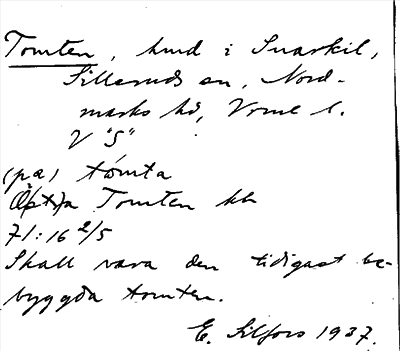 Tomten, hmd i Snarkil,
Silleruds sn, Nord-
marks hd, Vrml l.
V "S"
(pa) tómta
Tomten kb
71:16 2/5
Skall vara den tidigast be-
byggda tomten.
E. Silfors 1937.